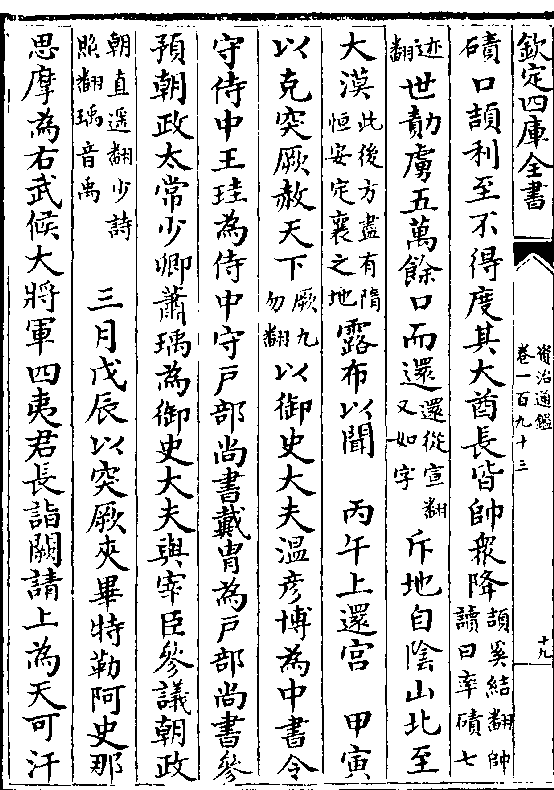 欽定四庫全書
資治通鑑
卷一百九十三
十九
磧口頡利至不得度其大酋長皆帥衆降頡奚結翻帥
讀曰率磧七
迹
翻世勣虜五萬餘口而還還從宣翻
又如字斥地自隂山北至
大漠此後方盡有隋
恒安定襄之地露布以聞 丙午上還宮 甲寅
以克突厥赦天下厥九
勿翻以御史大夫温彦博為中書令
守侍中王珪為侍中守戸部尚書戴胄為戸部尚書參
預朝政太常少卿蕭瑀為御史大夫與宰臣參議朝政
朝直遥翻少詩
照翻瑀音禹 三月戊辰以突厥夾畢特勒阿史那
思摩為右武候大將軍四夷君長詣闕請上為天可汗